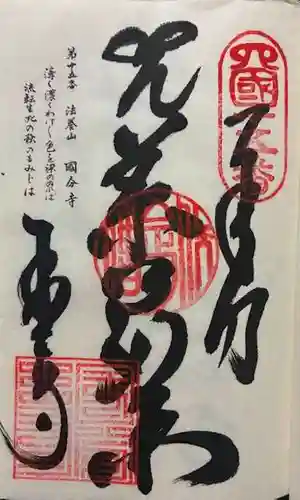 四國十五番
薬師如来
第十五番 法養山 國分寺
薄く濃くわけ〱色を染ぬれは
流転生死の秋のもみじは
國分寺